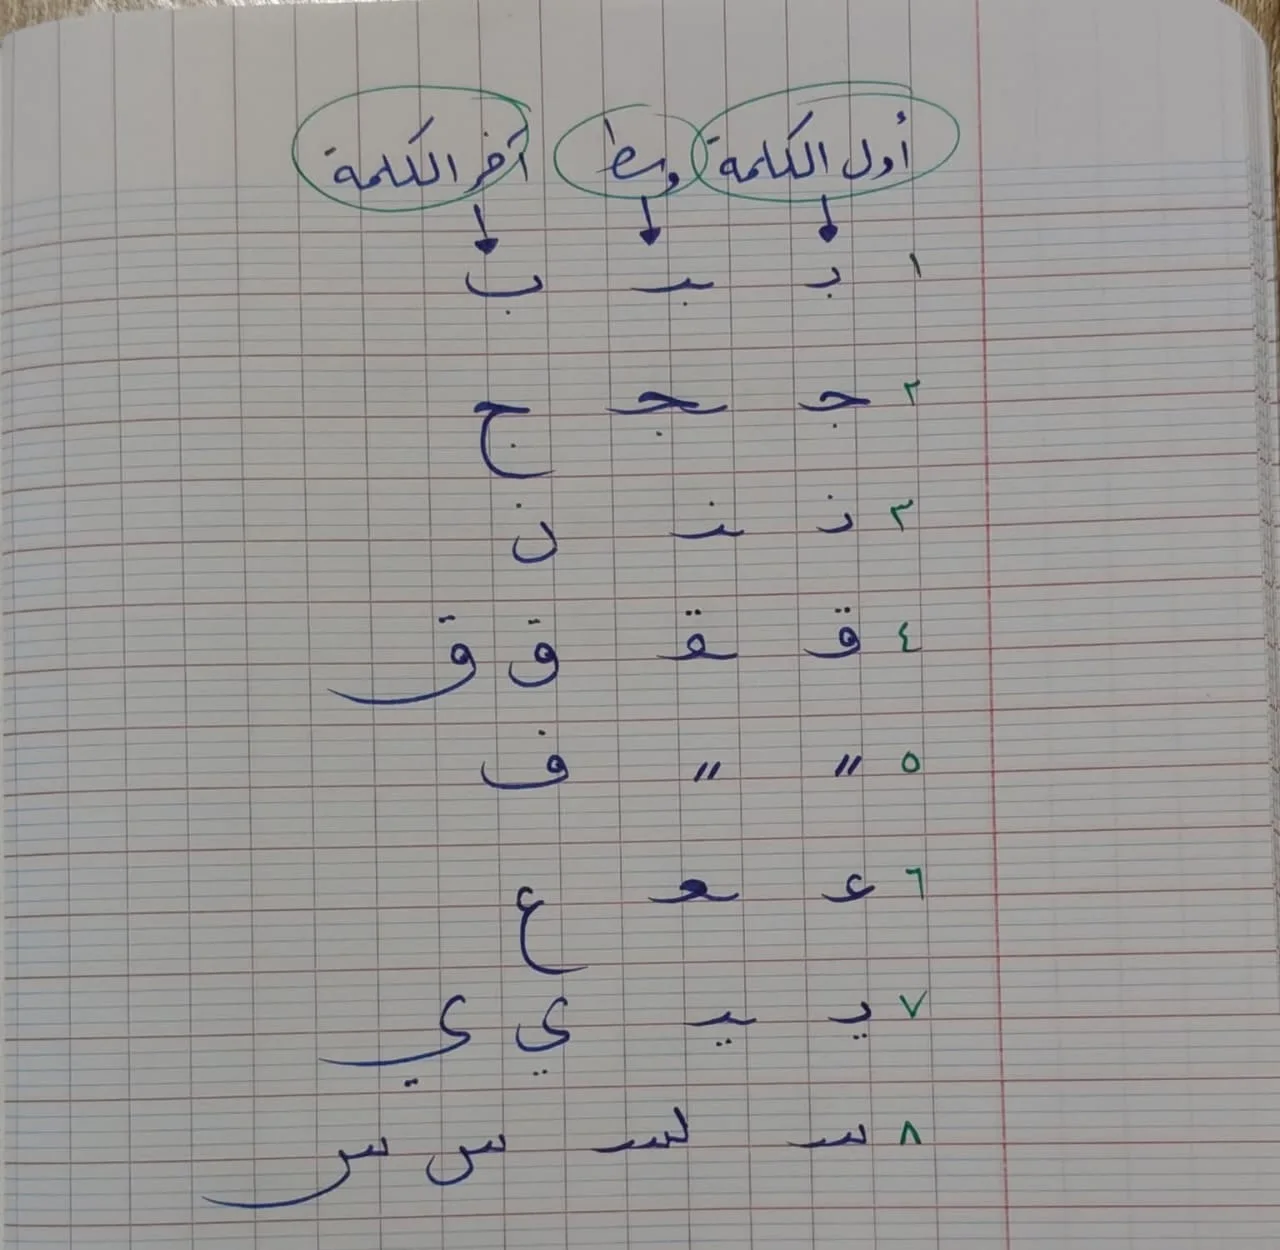 أول الكلمة وسط آخر الكلمة
١ بـ ـبـ ب
٢ جـ ـجـ ج
٣ نـ ـنـ ن
٤ قـ ـقـ ق ق
٥ // // ف
٦ عـ ـعـ ع
٧ يـ ـيـ ي ي
٨ سـ لسـ س س